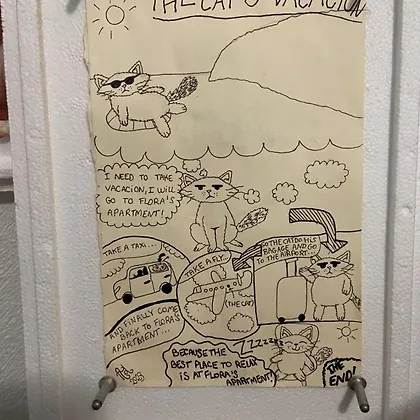 THE CAT'S VACACION
I NEED TO TAKE
VACACION, I WILL
GO TO FLORA'S
APARTMENT!
SO THE CAT DO HIS
BAGAGE AND GO
TO THE AIRPORT...
TAKE A FLY...
(THE CAT)
TAKE A TAXI...
AND FINALLY COME
BACK TO FLORA'S
APARTMENT...
ZZZZZ
BECAUSE THE
BEST PLACE TO RELAX
IS AT FLORA'S
APARTMENT!
THE
END!